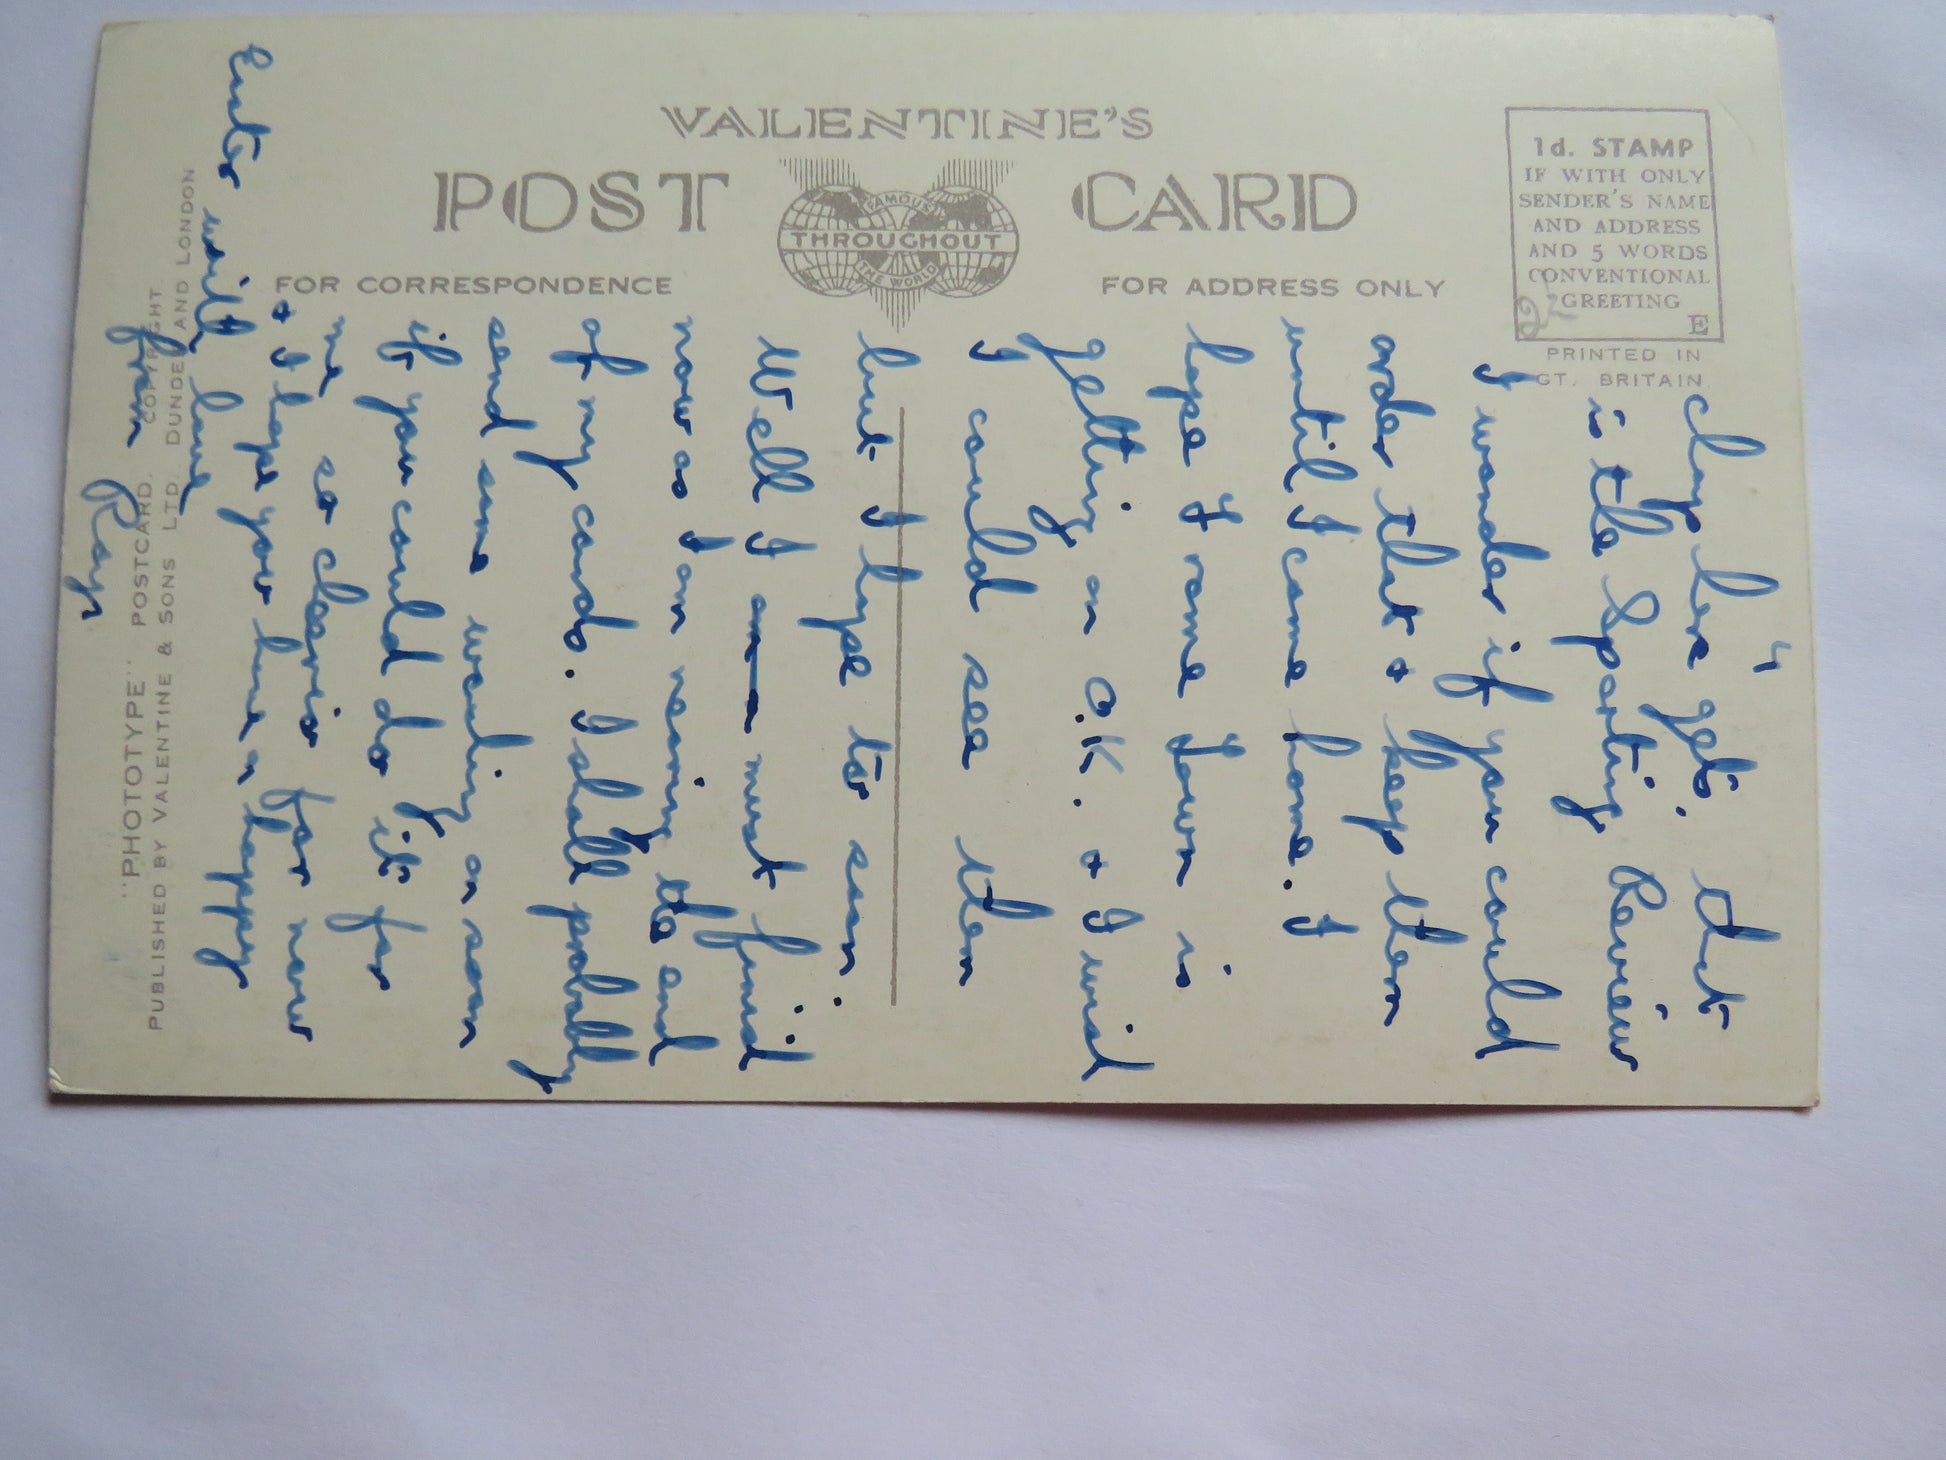 VALENTINE'S
POST CARD
FAMOUS
THROUGHOUT
THE WORLD
FOR CORRESPONDENCE
FOR ADDRESS ONLY
1d. STAMP
IF WITH ONLY
SENDER'S NAME
AND ADDRESS
AND 5 WORDS
CONVENTIONAL
GREETING
E
PRINTED IN
GT. BRITAIN
"PHOTOTYPE" POSTCARD. COPYRIGHT
PUBLISHED BY VALENTINE & SONS LTD. DUNDEE AND LONDON
4
chap here gets. that
is the Sporting Review
I wonder if you could
order that & keep them
until I come home. I
hope Town is
getting on O.K. & I wish
I could see them
but I hope to soon.
Well I am must finish
now as I am nearing the end
of my cards. I shall probably
send some washing on soon
if you could do it for
me so cheerio for now
& I hope you have a happy
Easter with love
from Ray